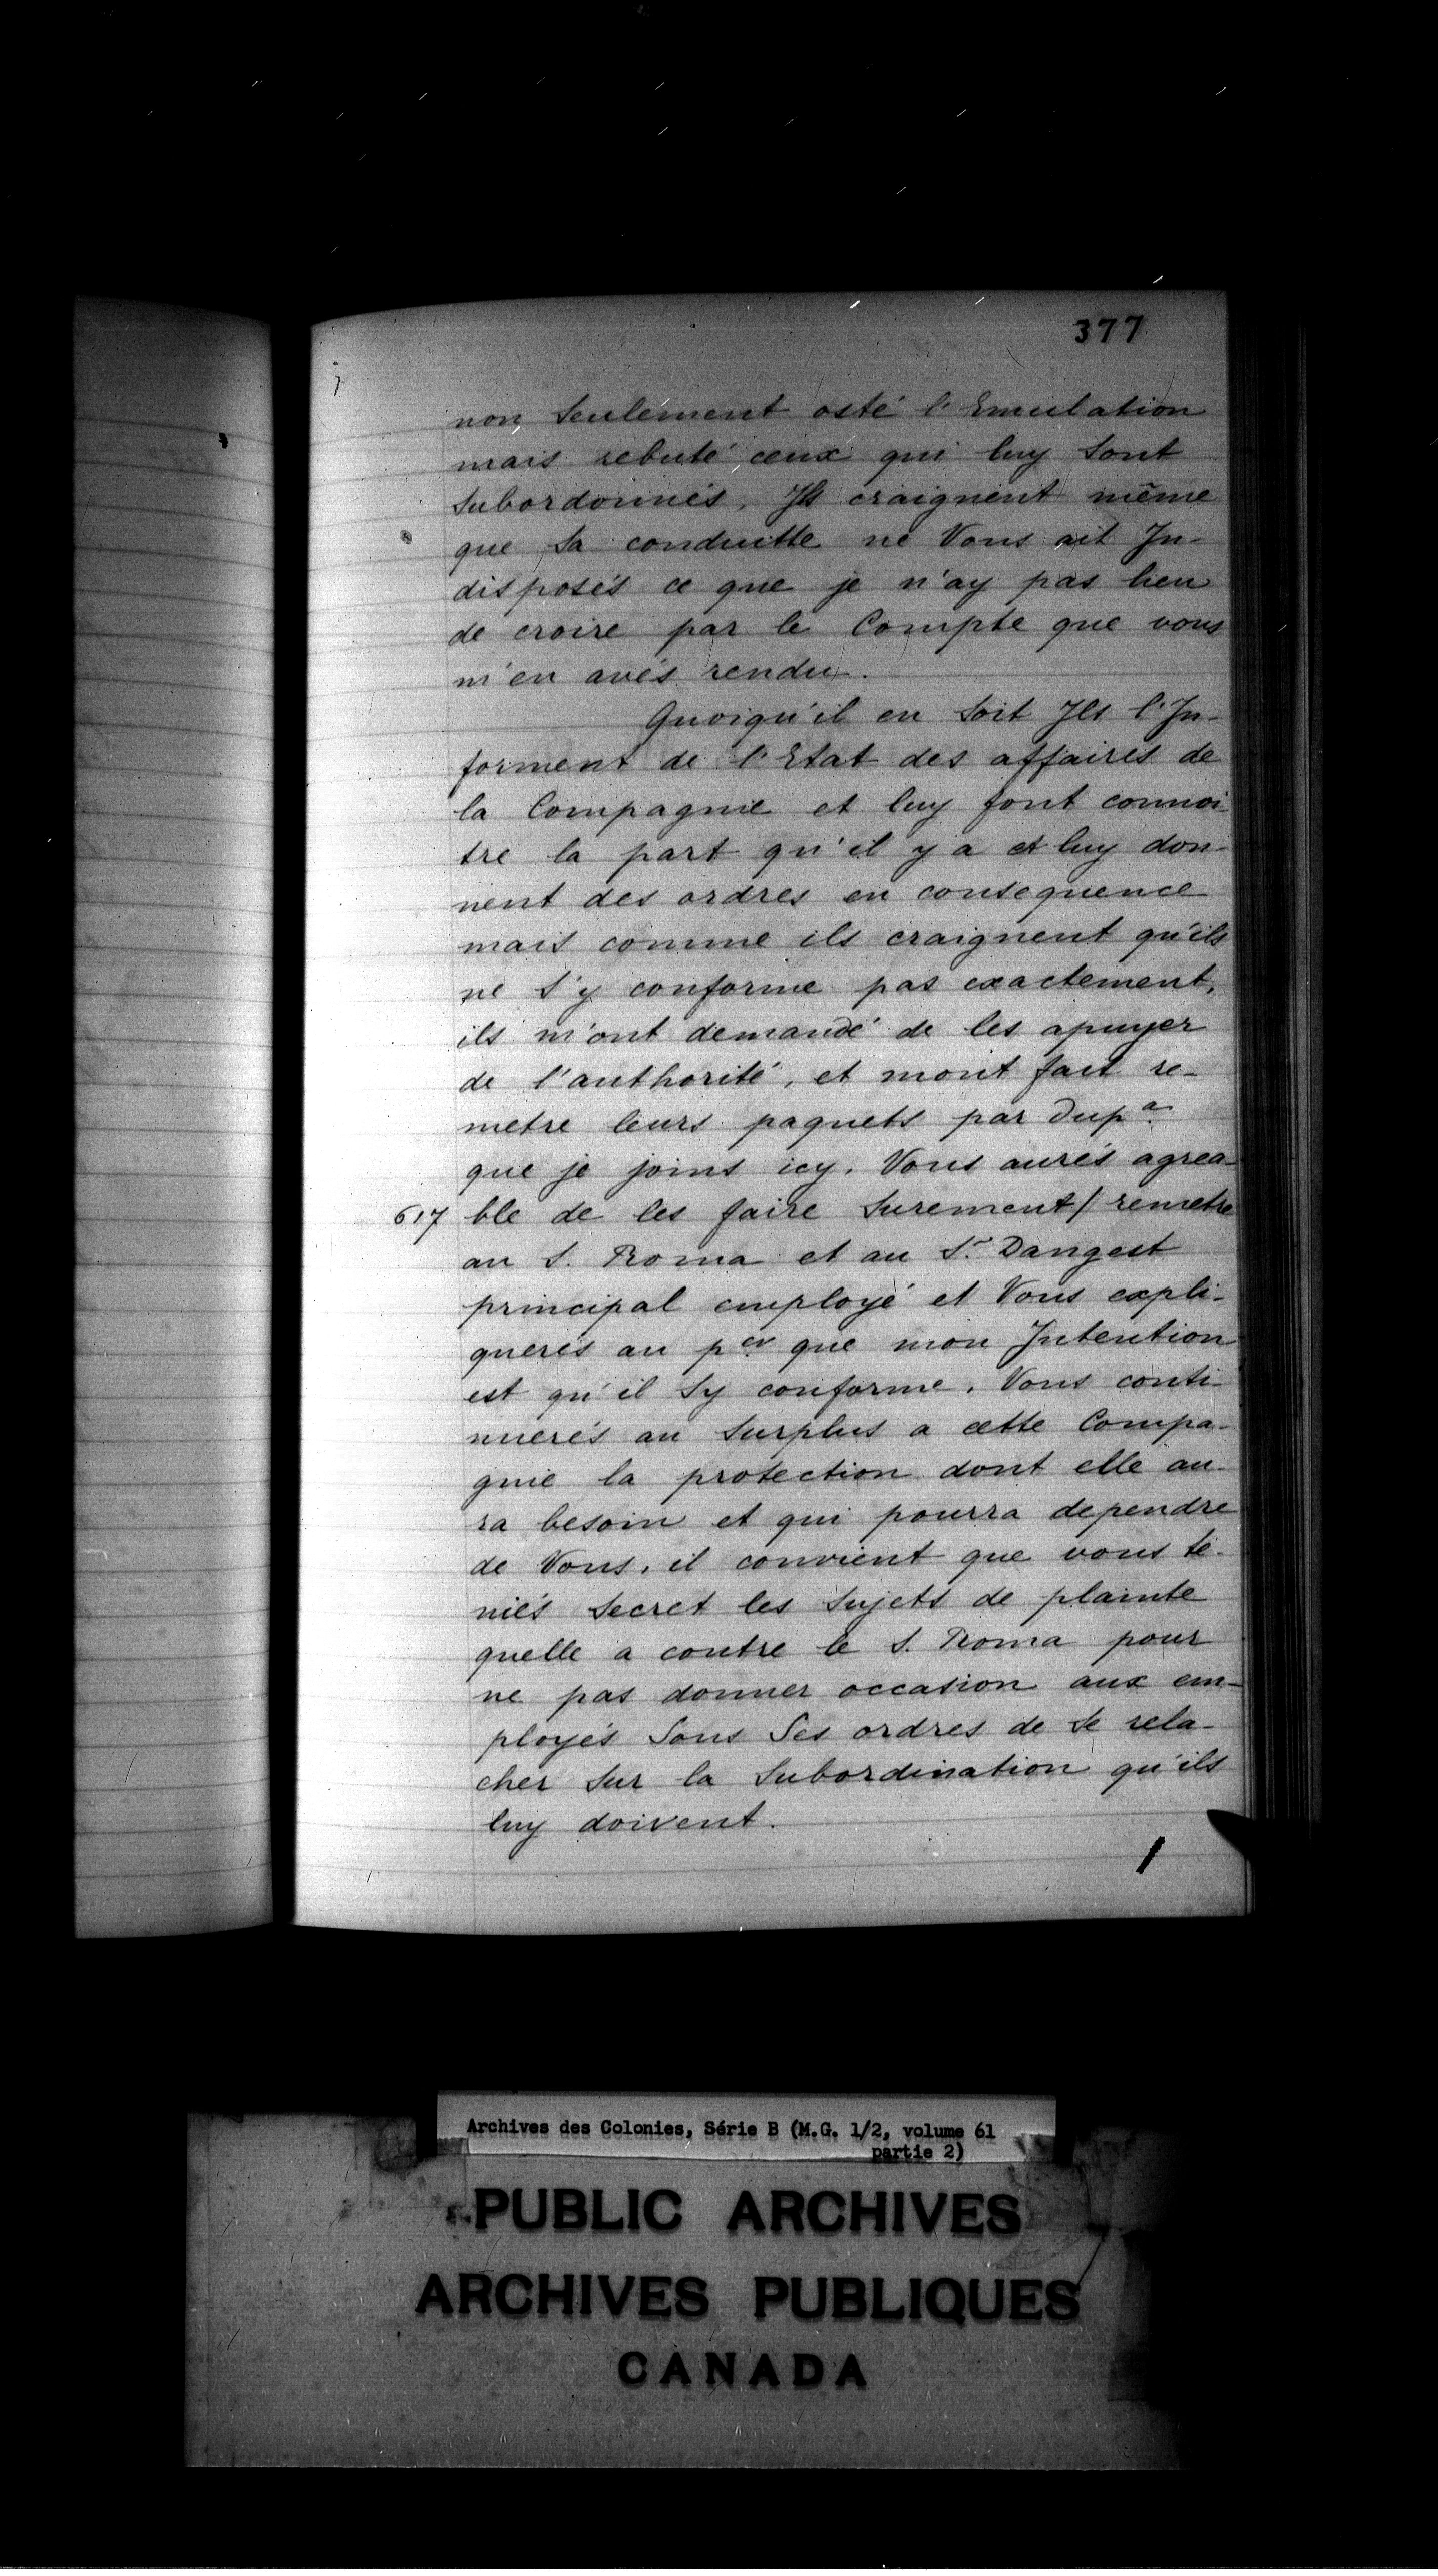 377
non Seulement osté l'Emulation
mais rebuté ceux qui luy Sont
Subordonnés, Ils craignent même
que Sa conduitte ne Vous ait In-
disposés ce que je n'ay pas lieu
de croire par le Compte que vous
m'en avés rendu.
Quoiqu'il en Soit Ils l'In-
forment de l'Etat des affaires de
la Compagnie et luy font connoi-
tre la part qu'il y a et luy don-
nent des ordres en consequence
mais comme ils craignent qu'ils
ne S'y conforme pas exactement,
ils m'ont demandé de les apuyer
de l'authorité, et mont fait re-
metre leurs paquets par Dupa.
que je joins icy. Vous aurés agrea-
617 ble de les faire Surement/ remetre
au S. Roma et au Sr. Dangest
principal employé et Vous expli-
querés au per que mon Intention
est qu'il Sy conforme. Vous conti-
nuerés au Surplus a cette Compa-
gnie la protection dont elle au-
ra besoin et qui pourra dependre
de Vous, il convient que vous te-
niés Secret les Sujets de plainte
quelle a contre le S. Roma pour
ne pas donner occasion aux em-
ployés Sous Ses ordres de Se rela-
cher Sur la Subordination qu'ils
luy doivent.
Archives des Colonies, Série B (M.G. 1/2, volume 61
partie 2)
PUBLIC ARCHIVES
ARCHIVES PUBLIQUES
CANADA